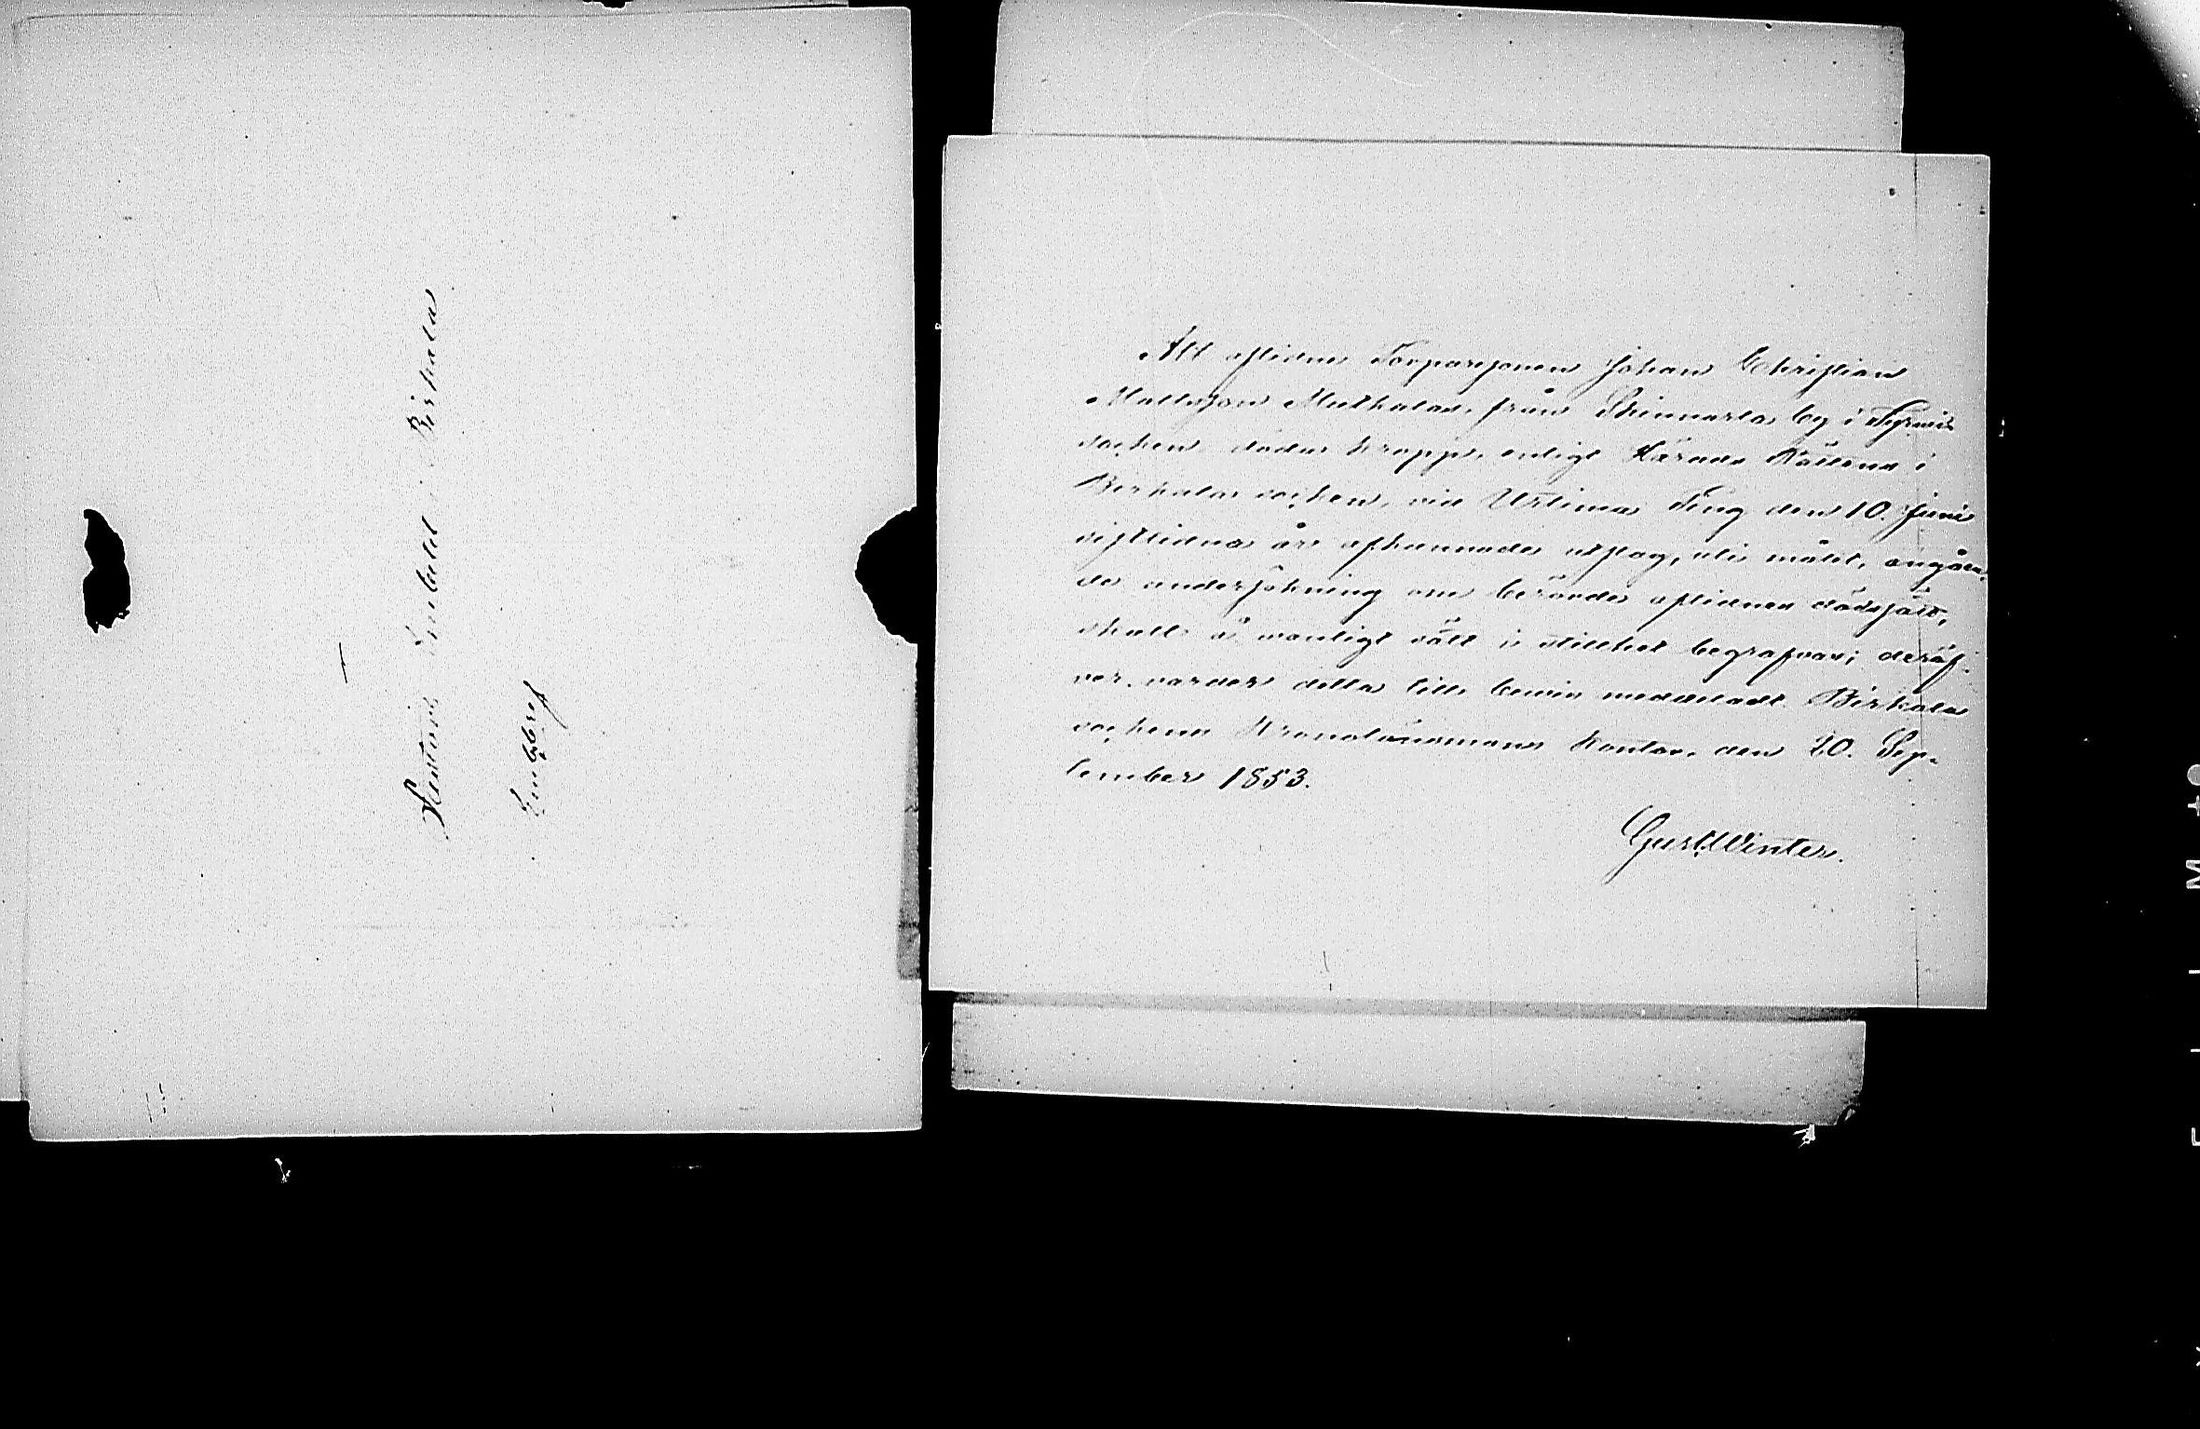 Pastors Embetet i Birkala
Embbref
Att aflidne Torparesonen Johan Christian
Mattsson Mutkala, från Skinnarla by i Tyrvis
socken döda kropp, enligt Härads Rättens i
Birkala socken, vid Urtima Ting den 10. Juni
sistlidna år afkunnade utslag, uti målet, angåen-
de undersökning om berörde aflidnes dödssätt,
skall å vanligt sätt i stillhet begrafvas; deröf-
ver varder detta till bevis meddeladt. Birkala
sockens Kronolänsmans Kontor, den 20. Sep-
tember 1853.
Gust. Winter.